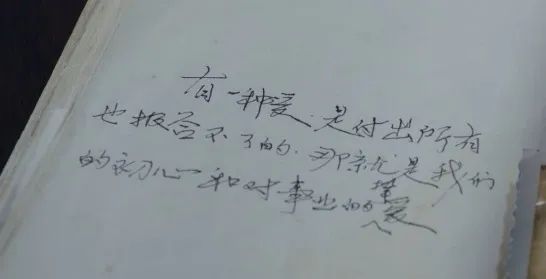 有一种爱,是付出所有
也报答不了的.那就是我们
的初心和对事业的挚爱